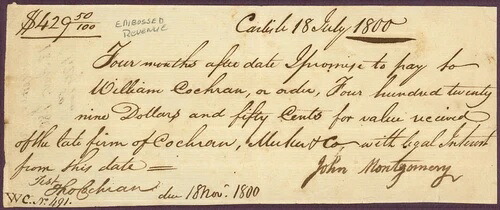 $429 50/100
EMBOSSED
REVENUE
Carlisle 18 July 1800
Four months after date I promise to pay to
William Cochran, or order, Four hundred twenty
nine Dollars and fifty Cents for value recieved
of the late firm of Cochran, & Co. with Legal Interest
from this date =
John Montgomery
Test
Tho Cochran
due 18 Novr. 1800
WC. No. 491.